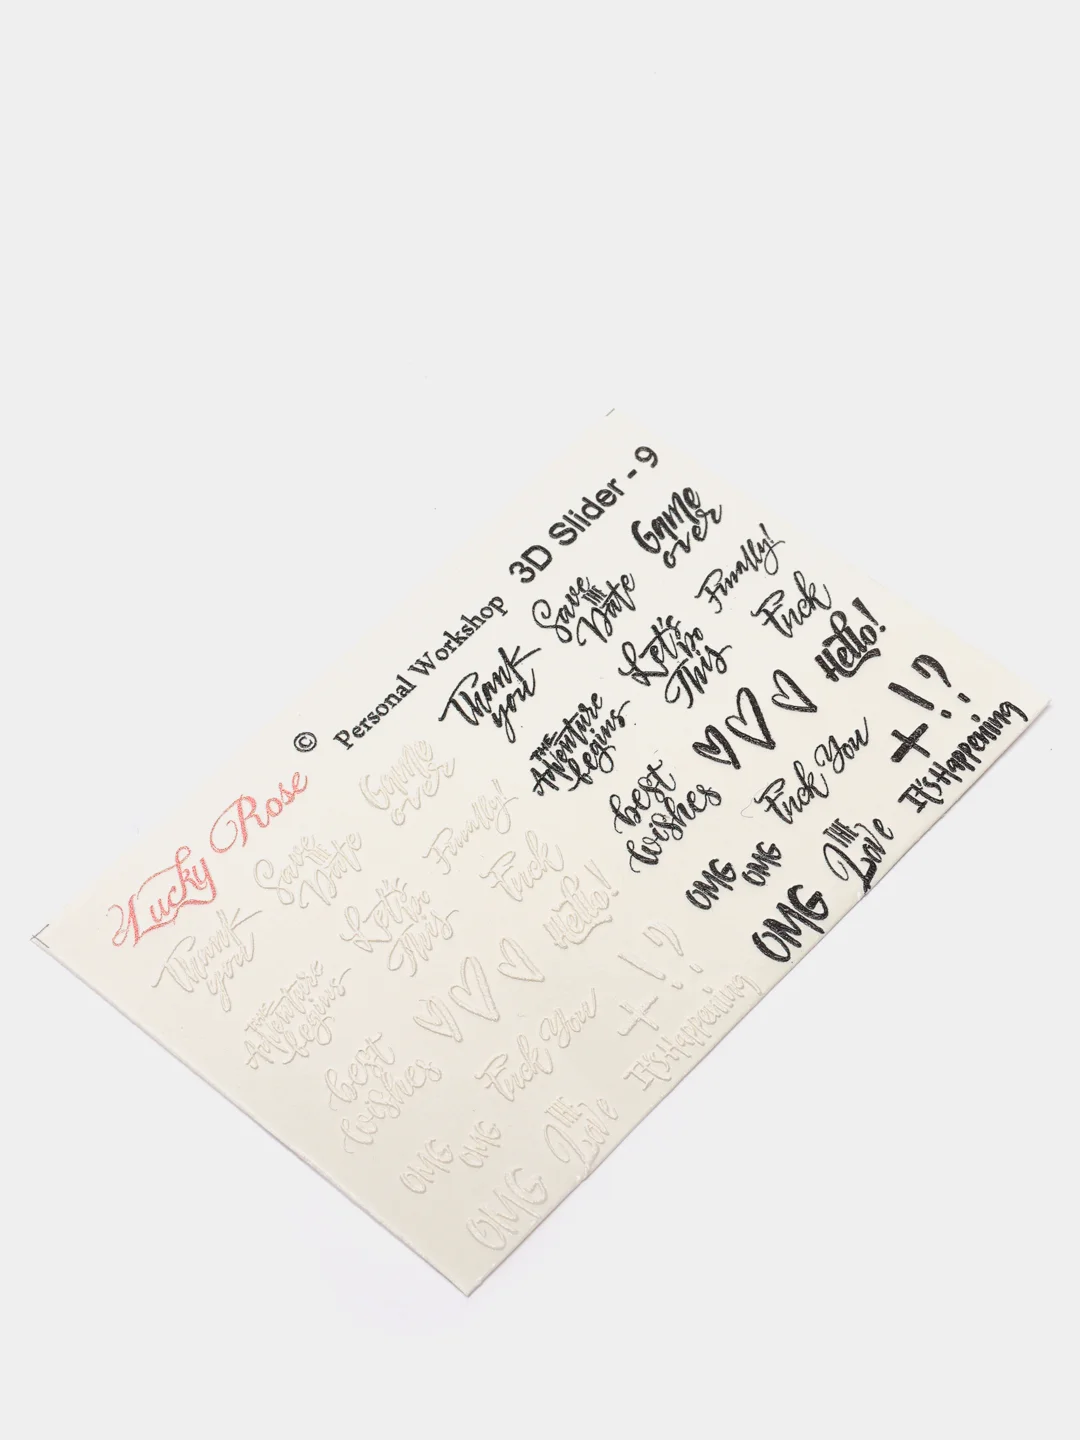 Lucky Rose
© Personal Workshop 3D Slider - 9
Thank
you
Save
THE
Date
Game
over
THE
Adventure
begins
Let's
Do
This
Finally!
Fuck
Hello!
best
wishes
Fuck You
+!?
OMG
OMG
THE
Love
It's Happening
OMG
Thank
you
Save
THE
Date
Game
over
THE
Adventure
begins
Let's
Do
This
Finally!
Fuck
Hello!
best
wishes
Fuck You
+!?
OMG
OMG
THE
Love
It's Happening
OMG